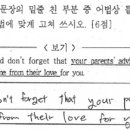 문장의 밑줄 친 부분 중 어법상 틀
법에 맞게 고쳐 쓰시오. [6점]
< 보기 >
d don't forget that your parents' advi
me from their love for you.
on't forget that your p
from their love for y